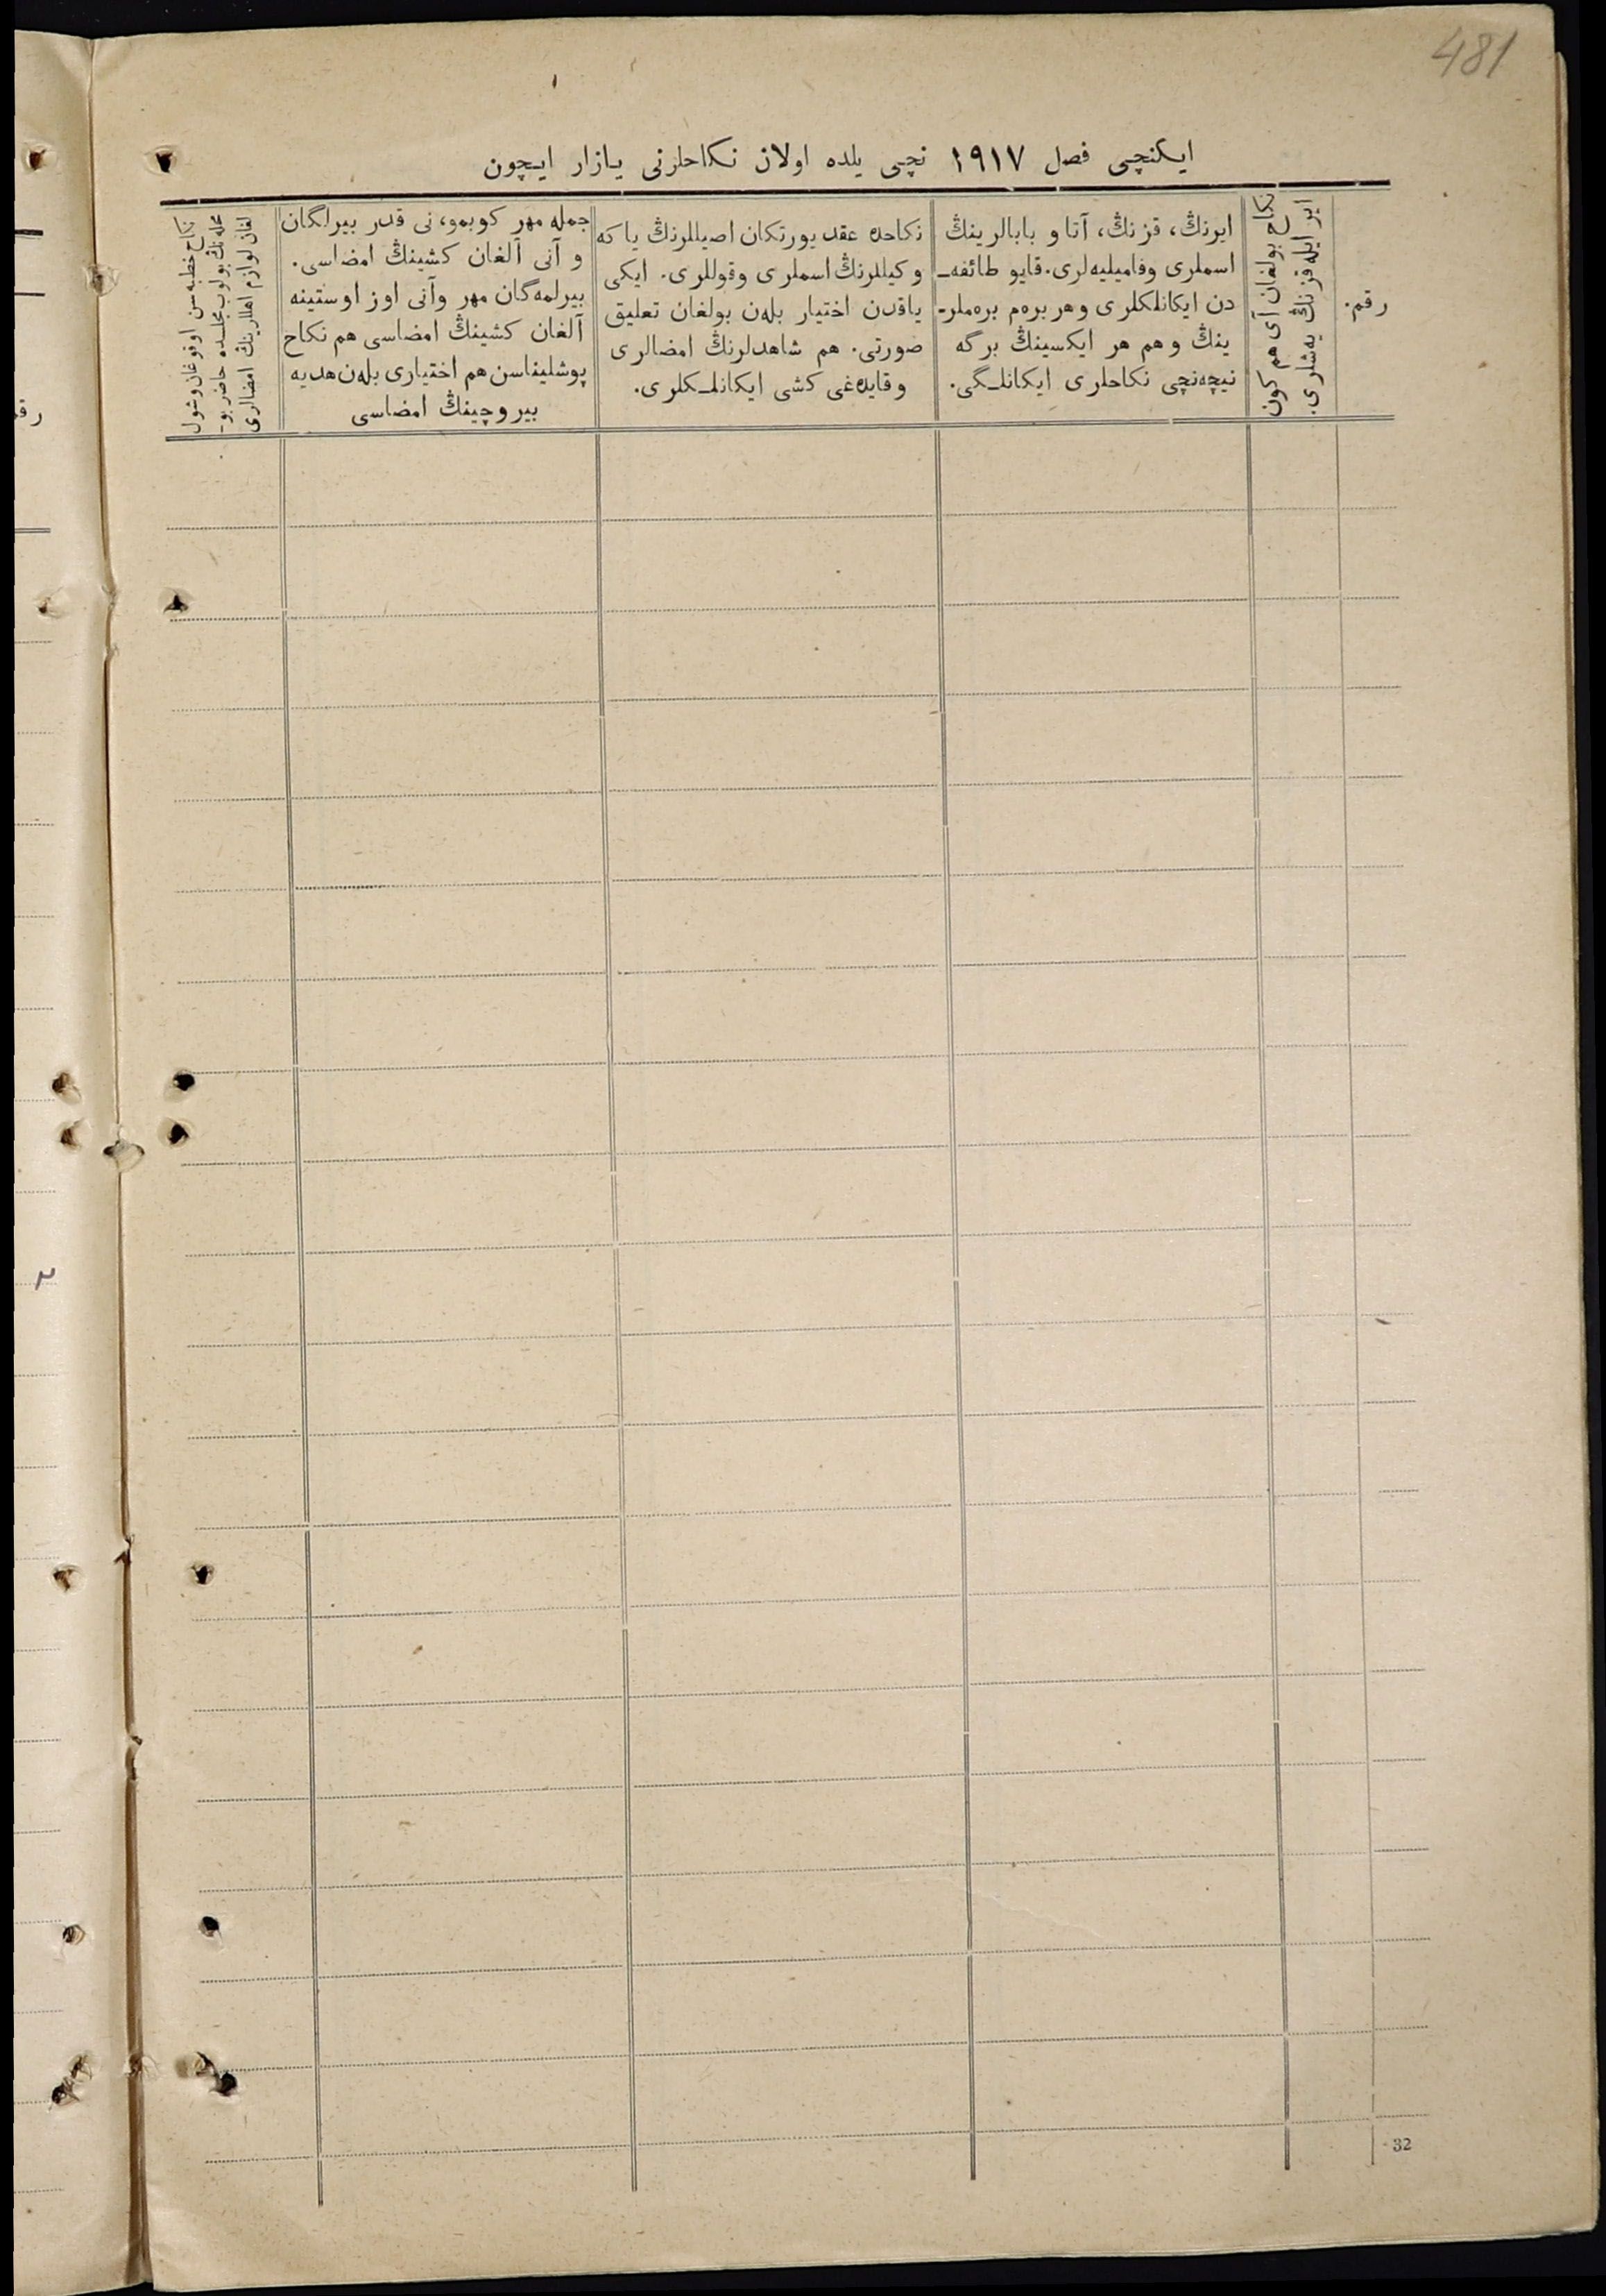 481
ایکنچی فصل ۱۹۱۷ نچی یلده اولان نکاحلرنی یازار ایچون
رقم.
نکاح بولغان آی هم کون
ایر ایله قزنڭ یه‌شلری.
ایرنڭ، قزنڭ، آتا و بابالرینڭ
اسملری وفامیلیه‌لری. قایو طائفه‌ـ
دن ایکانلکلری و هر بره‌م بره‌ملرـ
ینڭ و هم هر ایکسینڭ برگه
نیچه‌نچی نکاحلری ایکانلـگی.
نکاحده عقد یورتکان اصیللرنڭ یا که
وکیللرنڭ اسملری وقوللری. ایکی
یاقدن اختیار بله‌ن بولغان تعلیق
صورتی. هم شاهدلرنڭ امضالری
وقایده‌غی کشی ایکانلـکلری.
جمله مهر کوبمو، نی قدر بیرلگان
و آنی آلغان کشینڭ امضاسی.
بیرلمه‌گان مهر وآنی اوز اوستینه
آلغان کشینڭ امضاسی هم نکاح
پوشلیناسن هم اختیاری بله‌ن هدیه
بیروچینڭ امضاسی
نکاح خطبه‌سن اوقوغان وشول
محله‌نڭ بولوب مجلسده حاضر بوـ
لغان لوازم اهللرینڭ امضالری
رقم
32